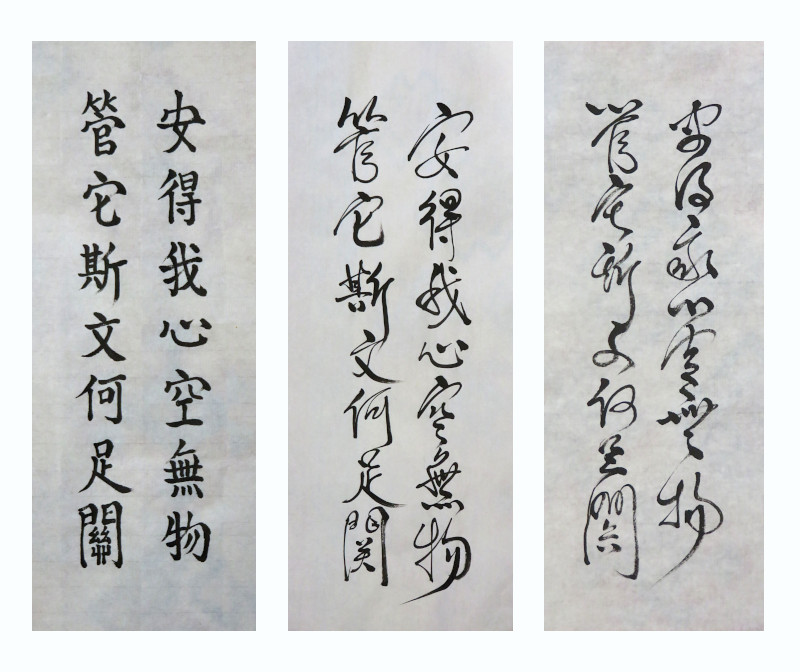 安得我心空無物
管它斯文何足關
安得我心空無物
管它斯文何足関
安得我心空無物
管它斯文何足關